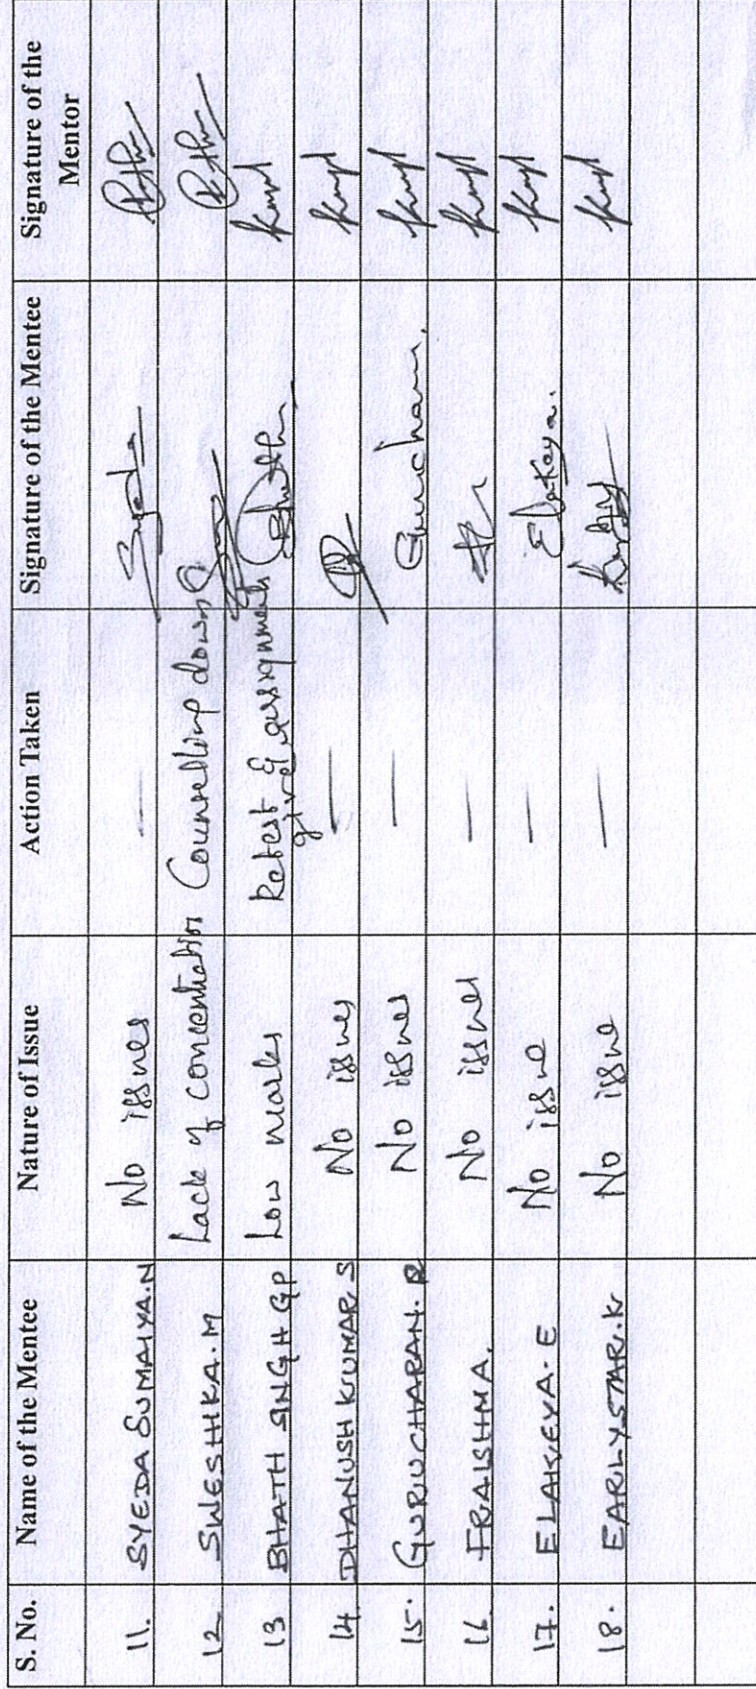 S. No. Name of the Mentee Nature of Issue Action Taken Signature of the Mentee Signature of the Mentor
11. SYEDA SUMAIYA.N No issues — Syeda
12 SWESHIKA.M Lack of concentration Counselling down
13 BHATH SINGH GP Low marks Retest & assignments given
14. DHANUSH KUMAR S No issues —
15. GURUCHARAN. R No issues — Gurucharan.
16 FRAISHMA. No issues —
17. ELAKEYA. E No issue — Elakeya.
18. EARLYSTAR.K No issue —